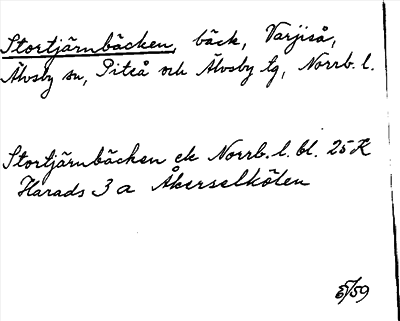 Stortjärnbäcken, bäck, Varjiså,
Älvsby sn, Piteå och Älvsby tg, Norrb. l.
Stortjärnbäcken ek Norrb. l. bl. 25 K
Harads 3 a Åkerselköten
5/59